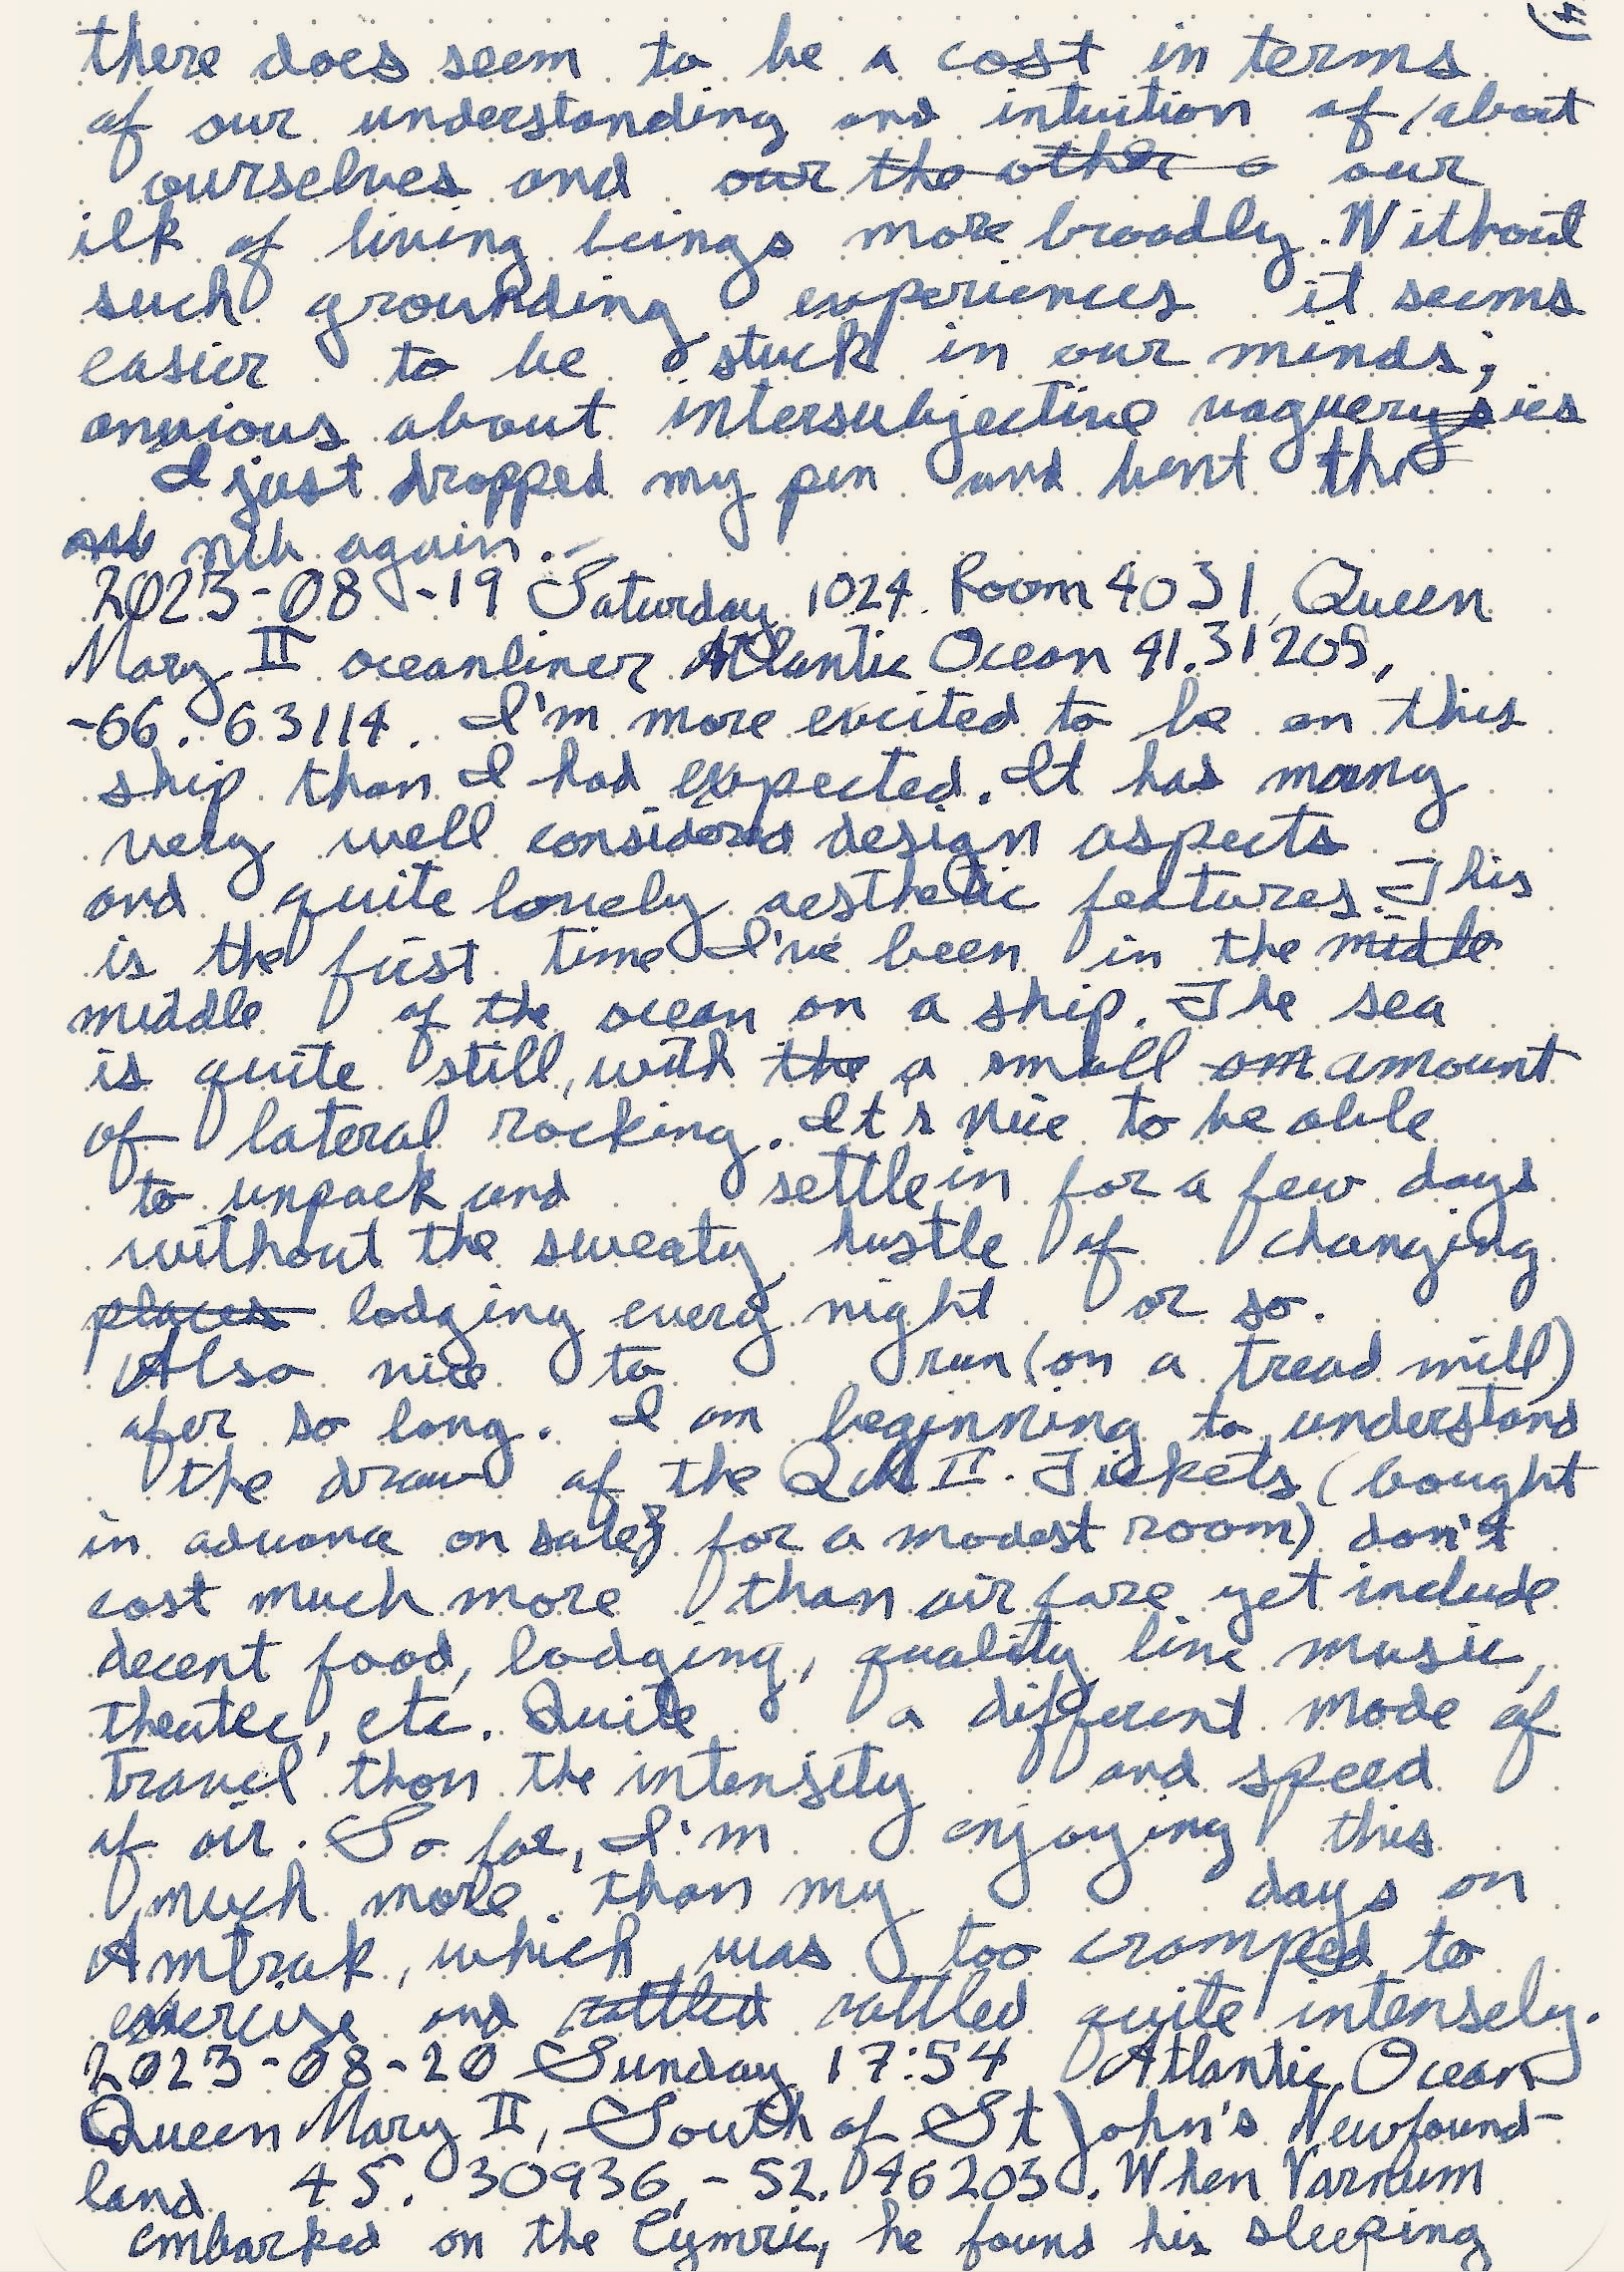 there does seem to be a cost in terms
of our understanding and intuition of/about
ourselves and our the other a our
ilk of living beings more broadly. Without
such grounding experiences it seems
easier to be stuck in our minds;
anxious about intersubjective vaguerysies
I just dropped my pen and bent the
nib again.
2023-08-19 Saturday 1024 Room 4031, Queen
Mary II oceanliner Atlantic Ocean 41.31205,
-66.63114. I'm more excited to be on this
ship than I had expected. It has many
very well considered design aspects
and quite lovely aesthetic features. This
is the first time I've been in the midle
middle of the ocean on a ship. The sea
is quite still, with the a small am amount
of lateral rocking. It's nice to be able
to unpack and settle in for a few days
without the sweaty hustle of changing
places lodging every night or so.
Also nice to run (on a tread mill)
afer so long. I am beginning to understand
the draw of the QM II. Tickets (bought
in advance on sale, for a modest room) don't
cost much more than air fare yet include
decent food, lodging, quality live music,
theater, etc. Quite a different mode of
travel than the intensity and speed
of air. So far, I'm enjoying this
much more than my days on
Amtrak, which was too cramped to
exercise and rattled rattled quite intensely.
2023-08-20 Sunday 17:54 Atlantic Ocean
Queen Mary II, South of St John's Newfound-
land 45.30936, -52.46203. When Varnum
embarked on the Cymric, he found his sleeping